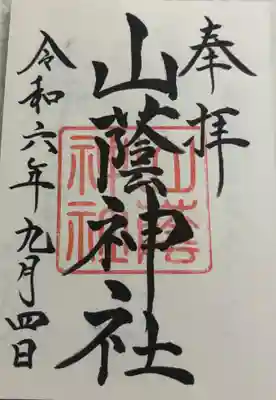 奉拝
山蔭神社
山蔭神社
令和六年九月四日